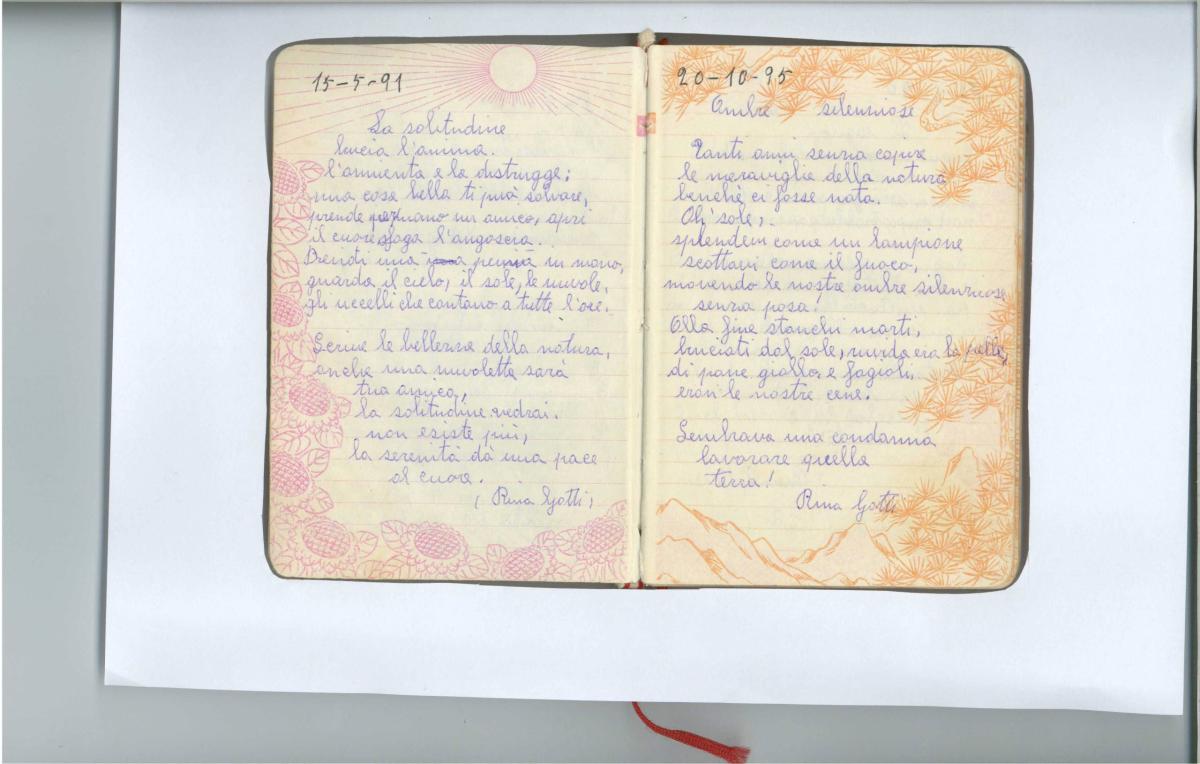 15-5-91
La solitudine
brucia l'anima.
l'annienta e la distrugge;
una cosa bella ti può salvare,
prende per mano un amico, apri
il cuore sfoga l'angoscia.
Prendi una penna in mano,
guarda il cielo, il sole, le nuvole,
gli uccelli che cantano a tutte l'ore.
Scrive le bellezze della natura,
anche una nuvoletta sarà
tua amica,
la solitudine vedrai.
non esiste più,
la serenità dà una pace
al cuore.
(Rina Gatti)
20-10-95
Ombre silenziose
Tanti anni senza capire
le meraviglie della natura
benchè ci fosse nata.
Oh' sole,
splendevi come un lampione
scottavi come il fuoco,
movendo le nostre ombre silenziose
senza posa!
Alla fine stanchi morti,
bruciati dal sole, ruvida era la pelle,
di pane giallo, e fagioli,
eran le nostre cene.
Sembrava una condanna
lavorare quella
terra!
Rina Gatti